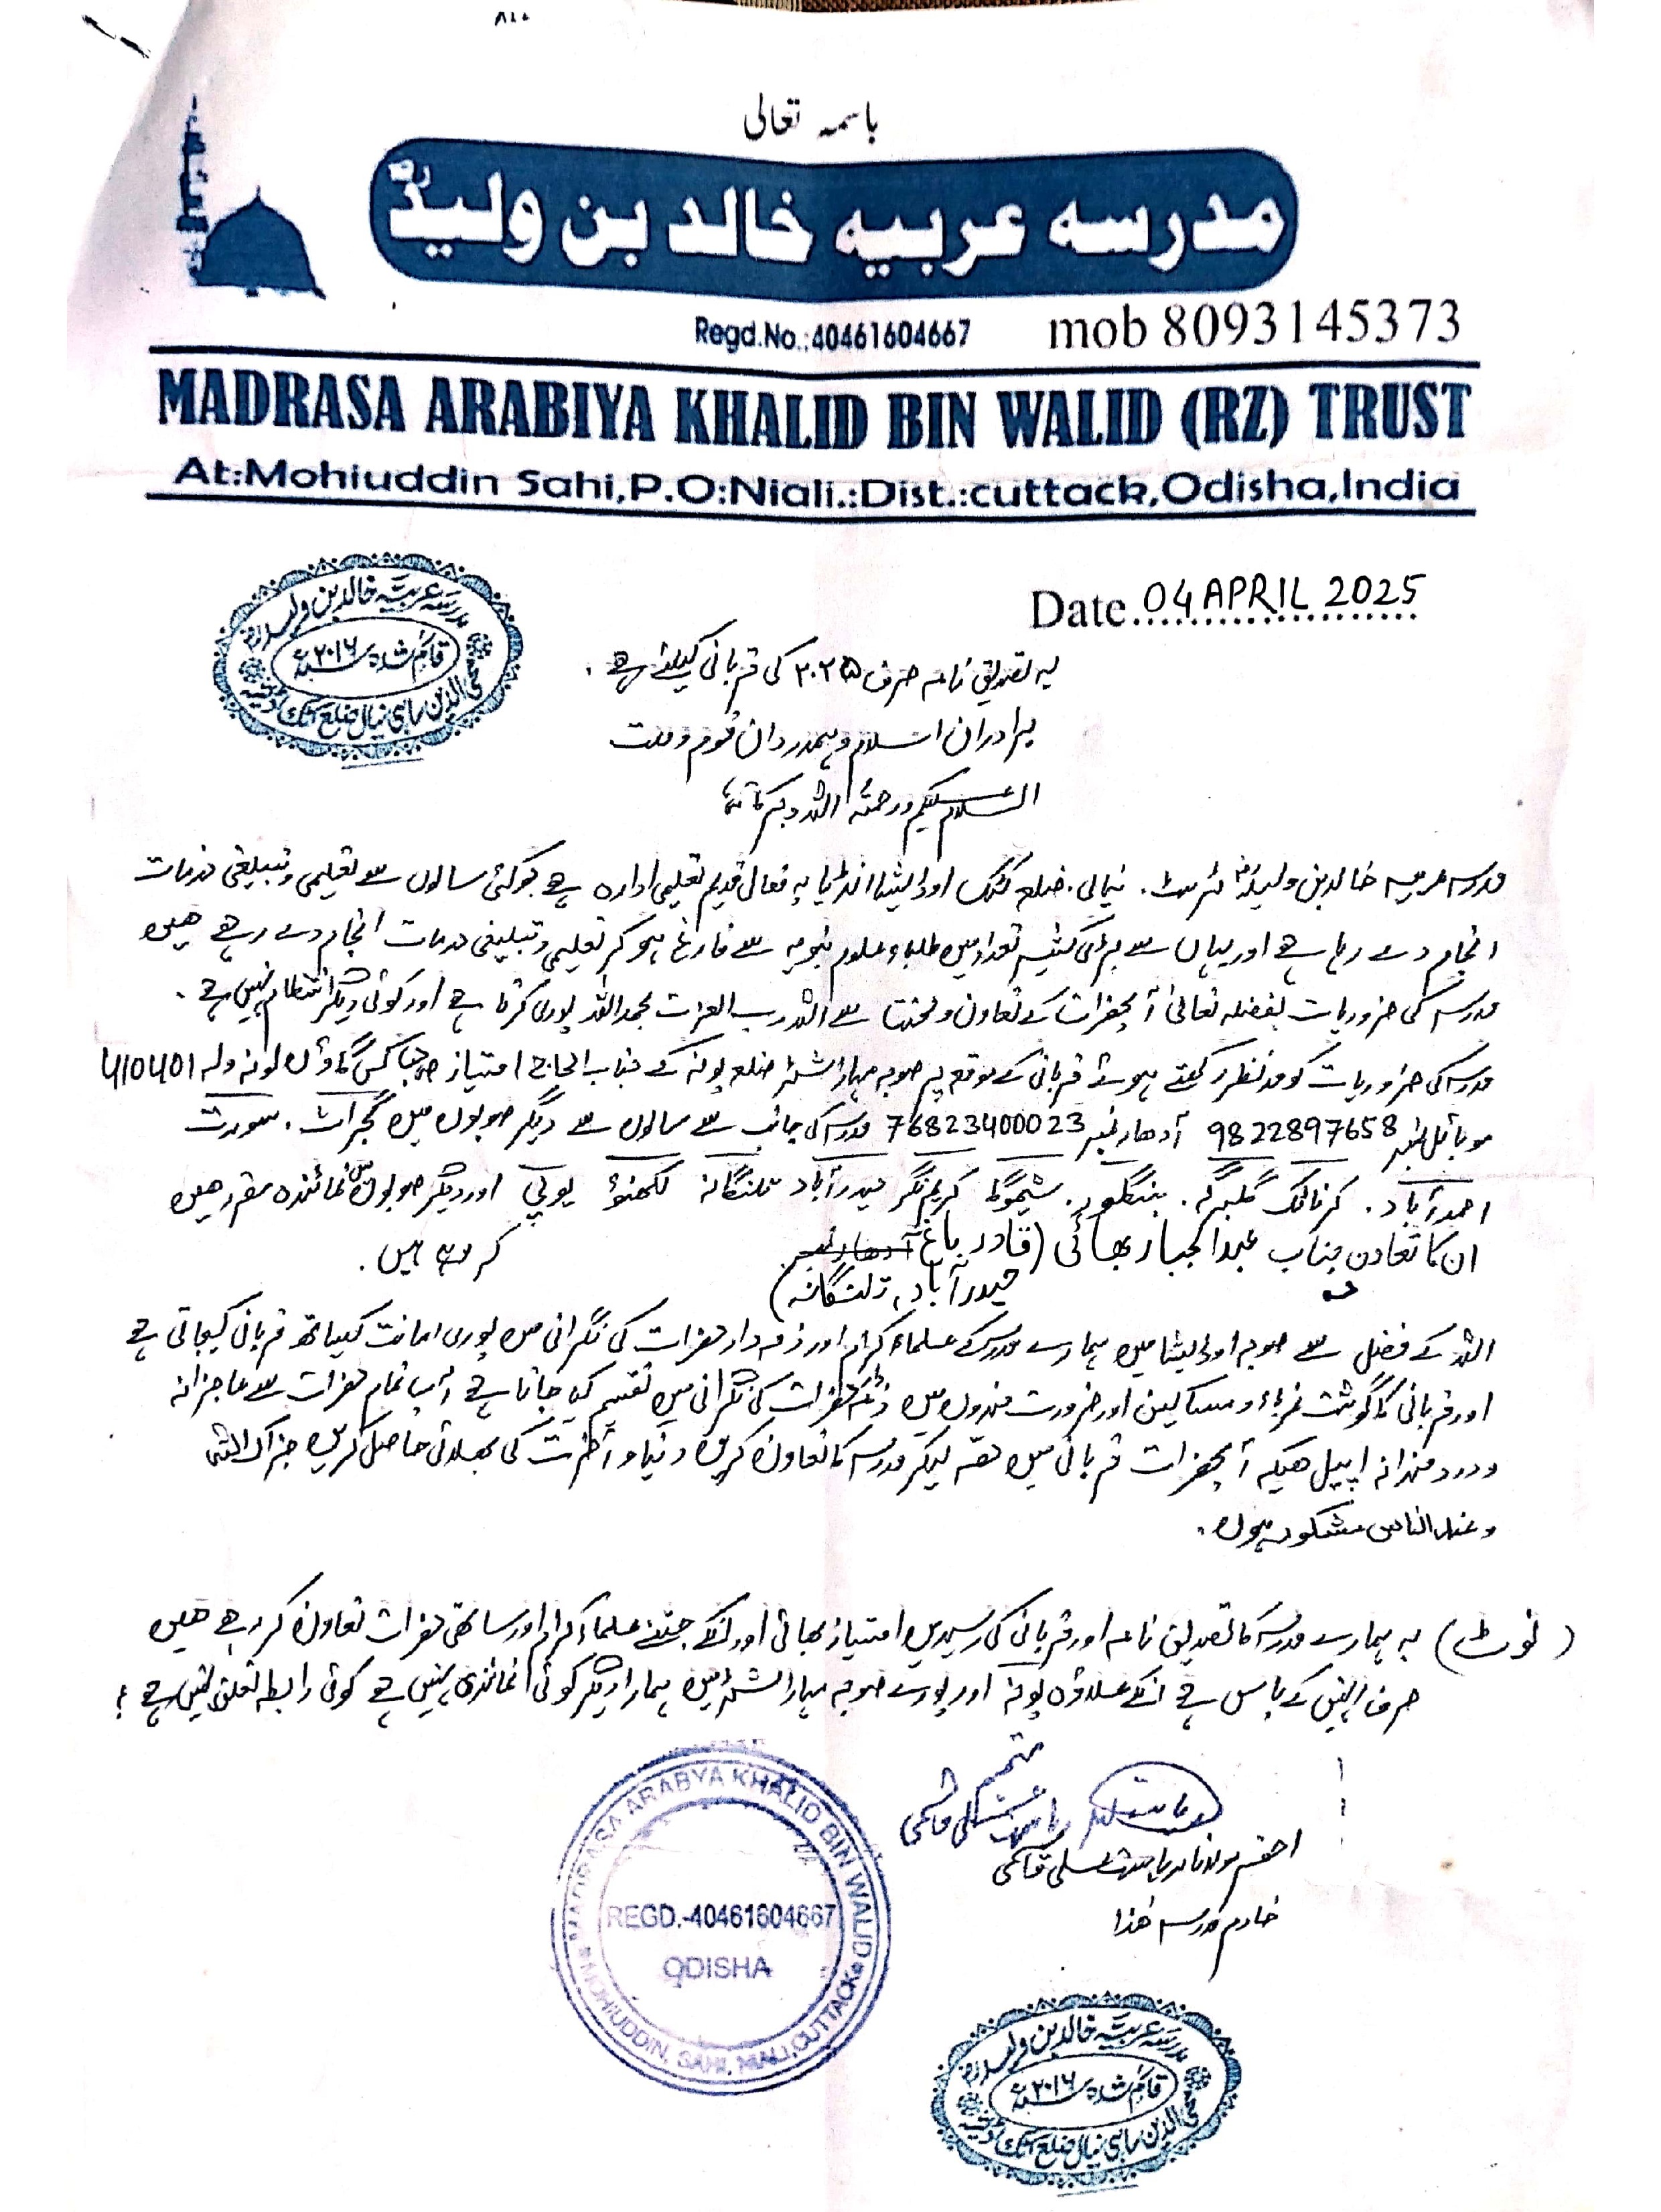 باسمہ تعالی
مدرسہ عربیہ خالد بن ولیدؓ
Regd.No.:40461604667 mob 8093145373
MADRASA ARABIYA KHALID BIN WALID (RZ) TRUST
At:Mohiuddin Sahi,P.O:Niali.:Dist.:cuttack,Odisha,India
Date....................
04 APRIL 2025
مدرسہ عربیہ خالد بن ولید
قائم شدہ ۲۰۱۶
محی الدین ساہی نیالی ضلع کٹک اڑیسہ
یہ تصدیق نامہ صرف ۲۰۲۵ کی قربانی کیلئے ہے .
برادران اسلام و ہمدردان قوم و ملت
السلام علیکم ورحمۃ اللہ وبرکاتہ
مدرسہ عربیہ خالد بن ولیدؓ ٹرسٹ . نیالی . ضلع کٹک اوڈیشا انڈیا یہ فعال قدیم تعلیمی ادارہ ہے جو کئی سالوں سے تعلیمی و تبلیغی خدمات
انجام دے رہا ہے اور یہاں سے بڑی کثیر تعداد میں طلباء علوم نبویہ سے فارغ ہو کر تعلیمی و تبلیغی خدمات انجام دے رہے ھیں
مدرسہ کی ضروریات بفضلہ تعالیٰ آپحضرات کے تعاون و محنت سے اللہ رب العزت بحمداللہ پوری کرتا ہے اور کوئی دیگر انتظام نہیں ہے .
مدرسہ کی ضروریات کو مدنظر رکھتے ہوئے قربانی کے موقع پر صوبہ مہاراشٹرا ضلع پونہ کے جناب الحاج امتیاز گاؤں لونہ ولہ 410401
موبائل نمبر 9822897658 آدھار نمبر 76823400023 مدرسہ کی جانب سے سالوں سے دیگر صوبوں میں گجرات . سورت
احمدآباد . کرناٹک گلبرگہ . بنگلور . شیموگا کریم نگر حیدرآباد تلنگانہ لکھنؤ یوپی اور دیگر صوبوں میں نمائندہ مقرر ھیں
ان کا تعاون جناب عبدالجبار بھائی (قادر باغ آدھار نمبر کر رہے ہیں .
حیدرآباد، تلنگانہ)
اللہ کے فضل سے صوبہ اوڈیشا میں ہمارے مدرسہ کے علماء کرام اور ذمہ دار حضرات کی نگرانی میں پوری امانت کیساتھ قربانی کیجاتی ہے
اور قربانی کا گوشت غرباء و مساکین اور ضرورت مندوں میں حضرات کی نگرانی میں تقسیم کیا جاتا ہے آپ تمام حضرات سے عاجزانہ
و دردمندانہ اپیل ھیکہ آپحضرات قربانی میں حصہ لیکر مدرسہ کا تعاون کریں دنیا و آخرت کی بھلائی حاصل کریں جزاک اللہ
و عندالناس مشکور ہوں .
(نوٹ) یہ ہمارے مدرسہ کا تصدیق نامہ اور قربانی کی رسیدیں امتیاز بھائی اور انکے جتنے علماء کرام اور ساتھی حضرات تعاون کر رہے ھیں
صرف انہیں کے پاس ہے انکے علاوہ پونہ اور پورے صوبہ مہاراشٹرا میں ہمارا دیگر کوئی نمائندہ نہیں ہے کوئی رابطہ تعلق نہیں ہے !
مہتمم
احقر مولانا ریاست علی قاسمی
خادم مدرسہ ھٰذا
MADRASA ARABYA KHALID BIN WALID
REGD.-40461604667
ODISHA
MOHIUDDIN, SAHI, NIALI, CUTTACK
مدرسہ عربیہ خالد بن ولید
قائم شدہ ۲۰۱۶
محی الدین ساہی نیالی ضلع کٹک اڑیسہ